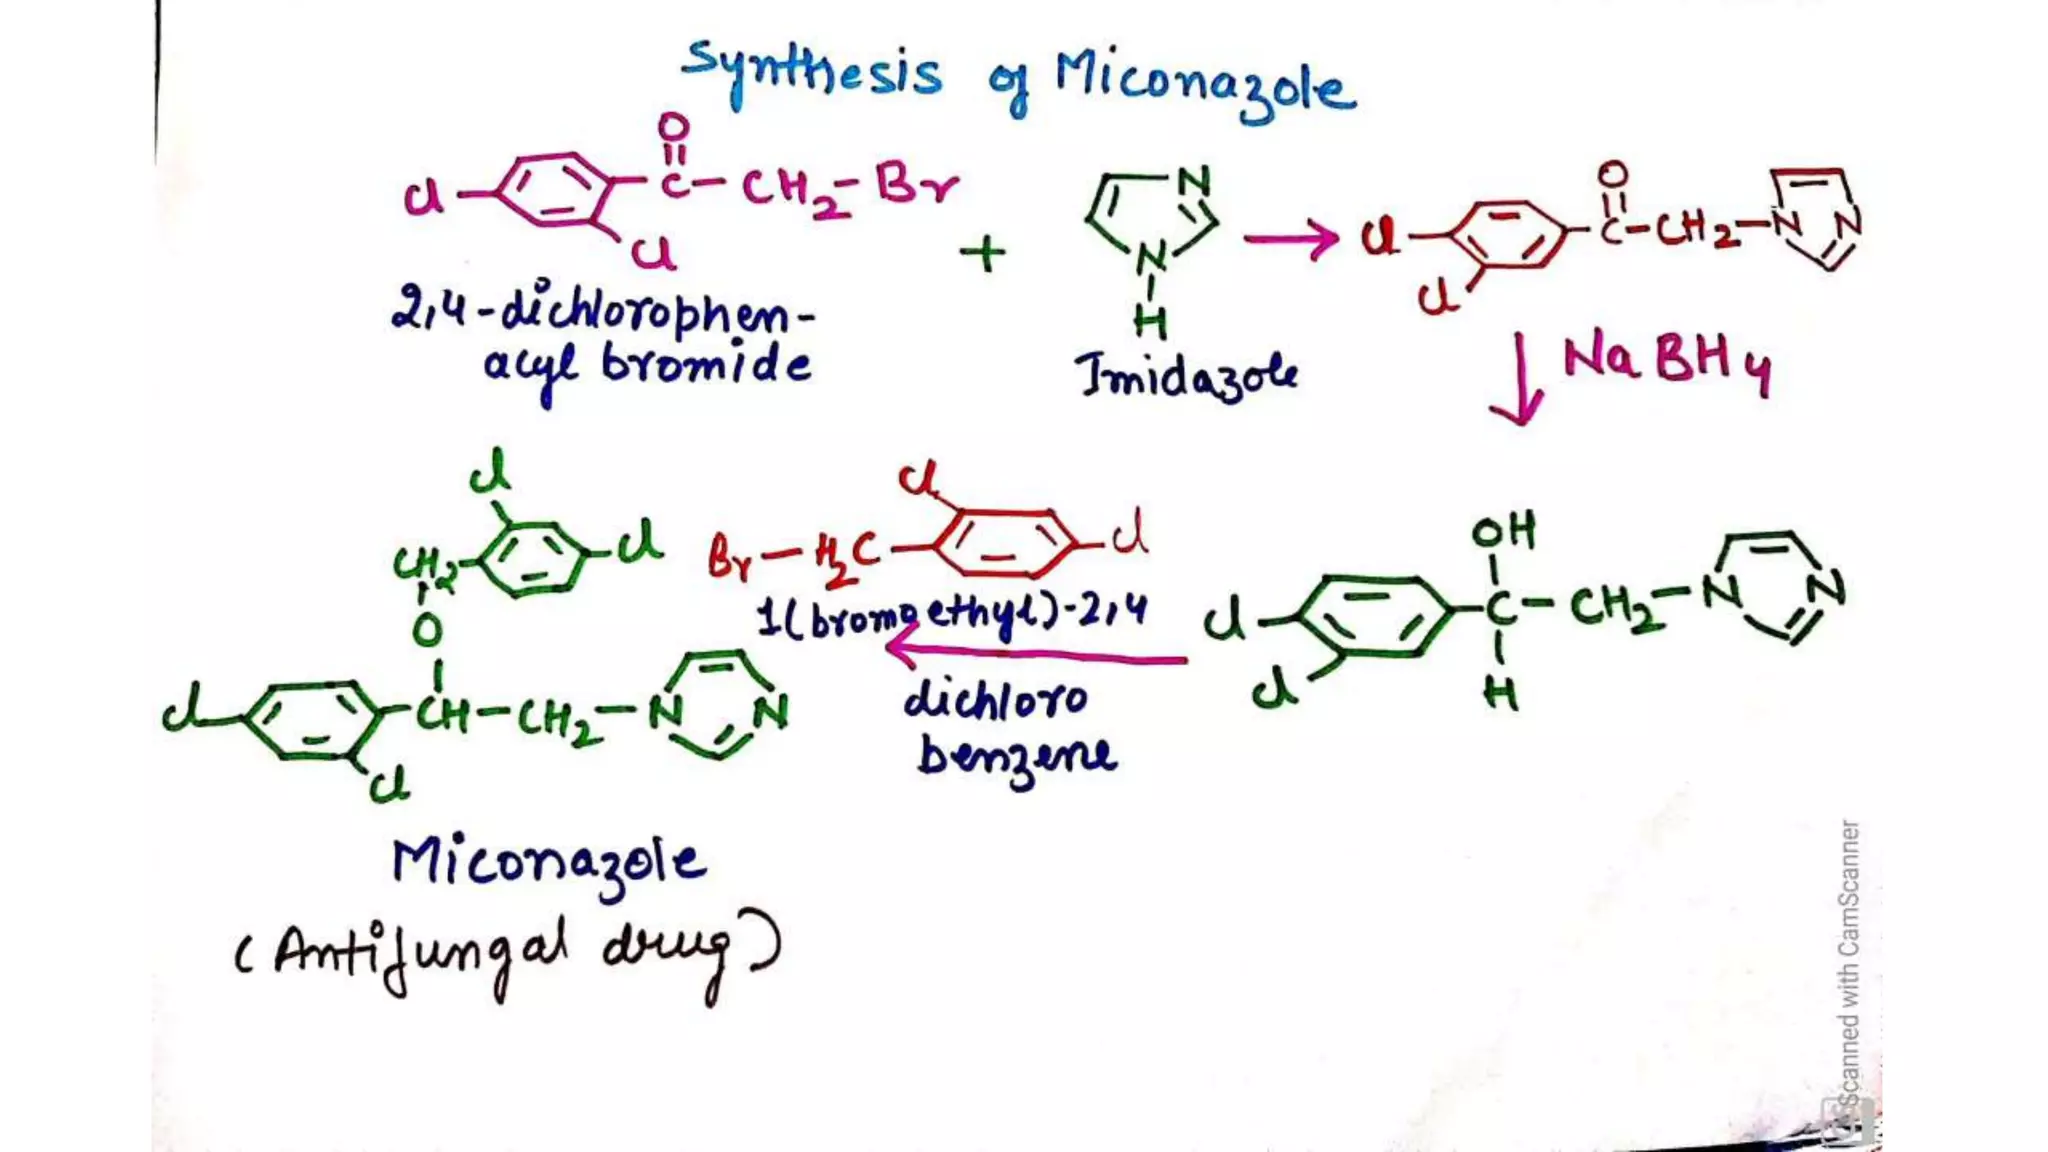 Synthesis of Miconazole
O
Cl C - CH2 - Br
Cl
2,4-dichlorophen-
acyl bromide
+
N
N
H
Imidazole
O
Cl C - CH2 - N N
Cl
NaBH4
OH
Cl C - CH2 - N N
Cl H
Cl
Br - H2C Cl
1(bromoethyl)-2,4
dichloro
benzene
Cl
CH2 Cl
O
Cl CH - CH2 - N N
Cl
Miconazole
(Antifungal drug)
Scanned with CamScanner
CS